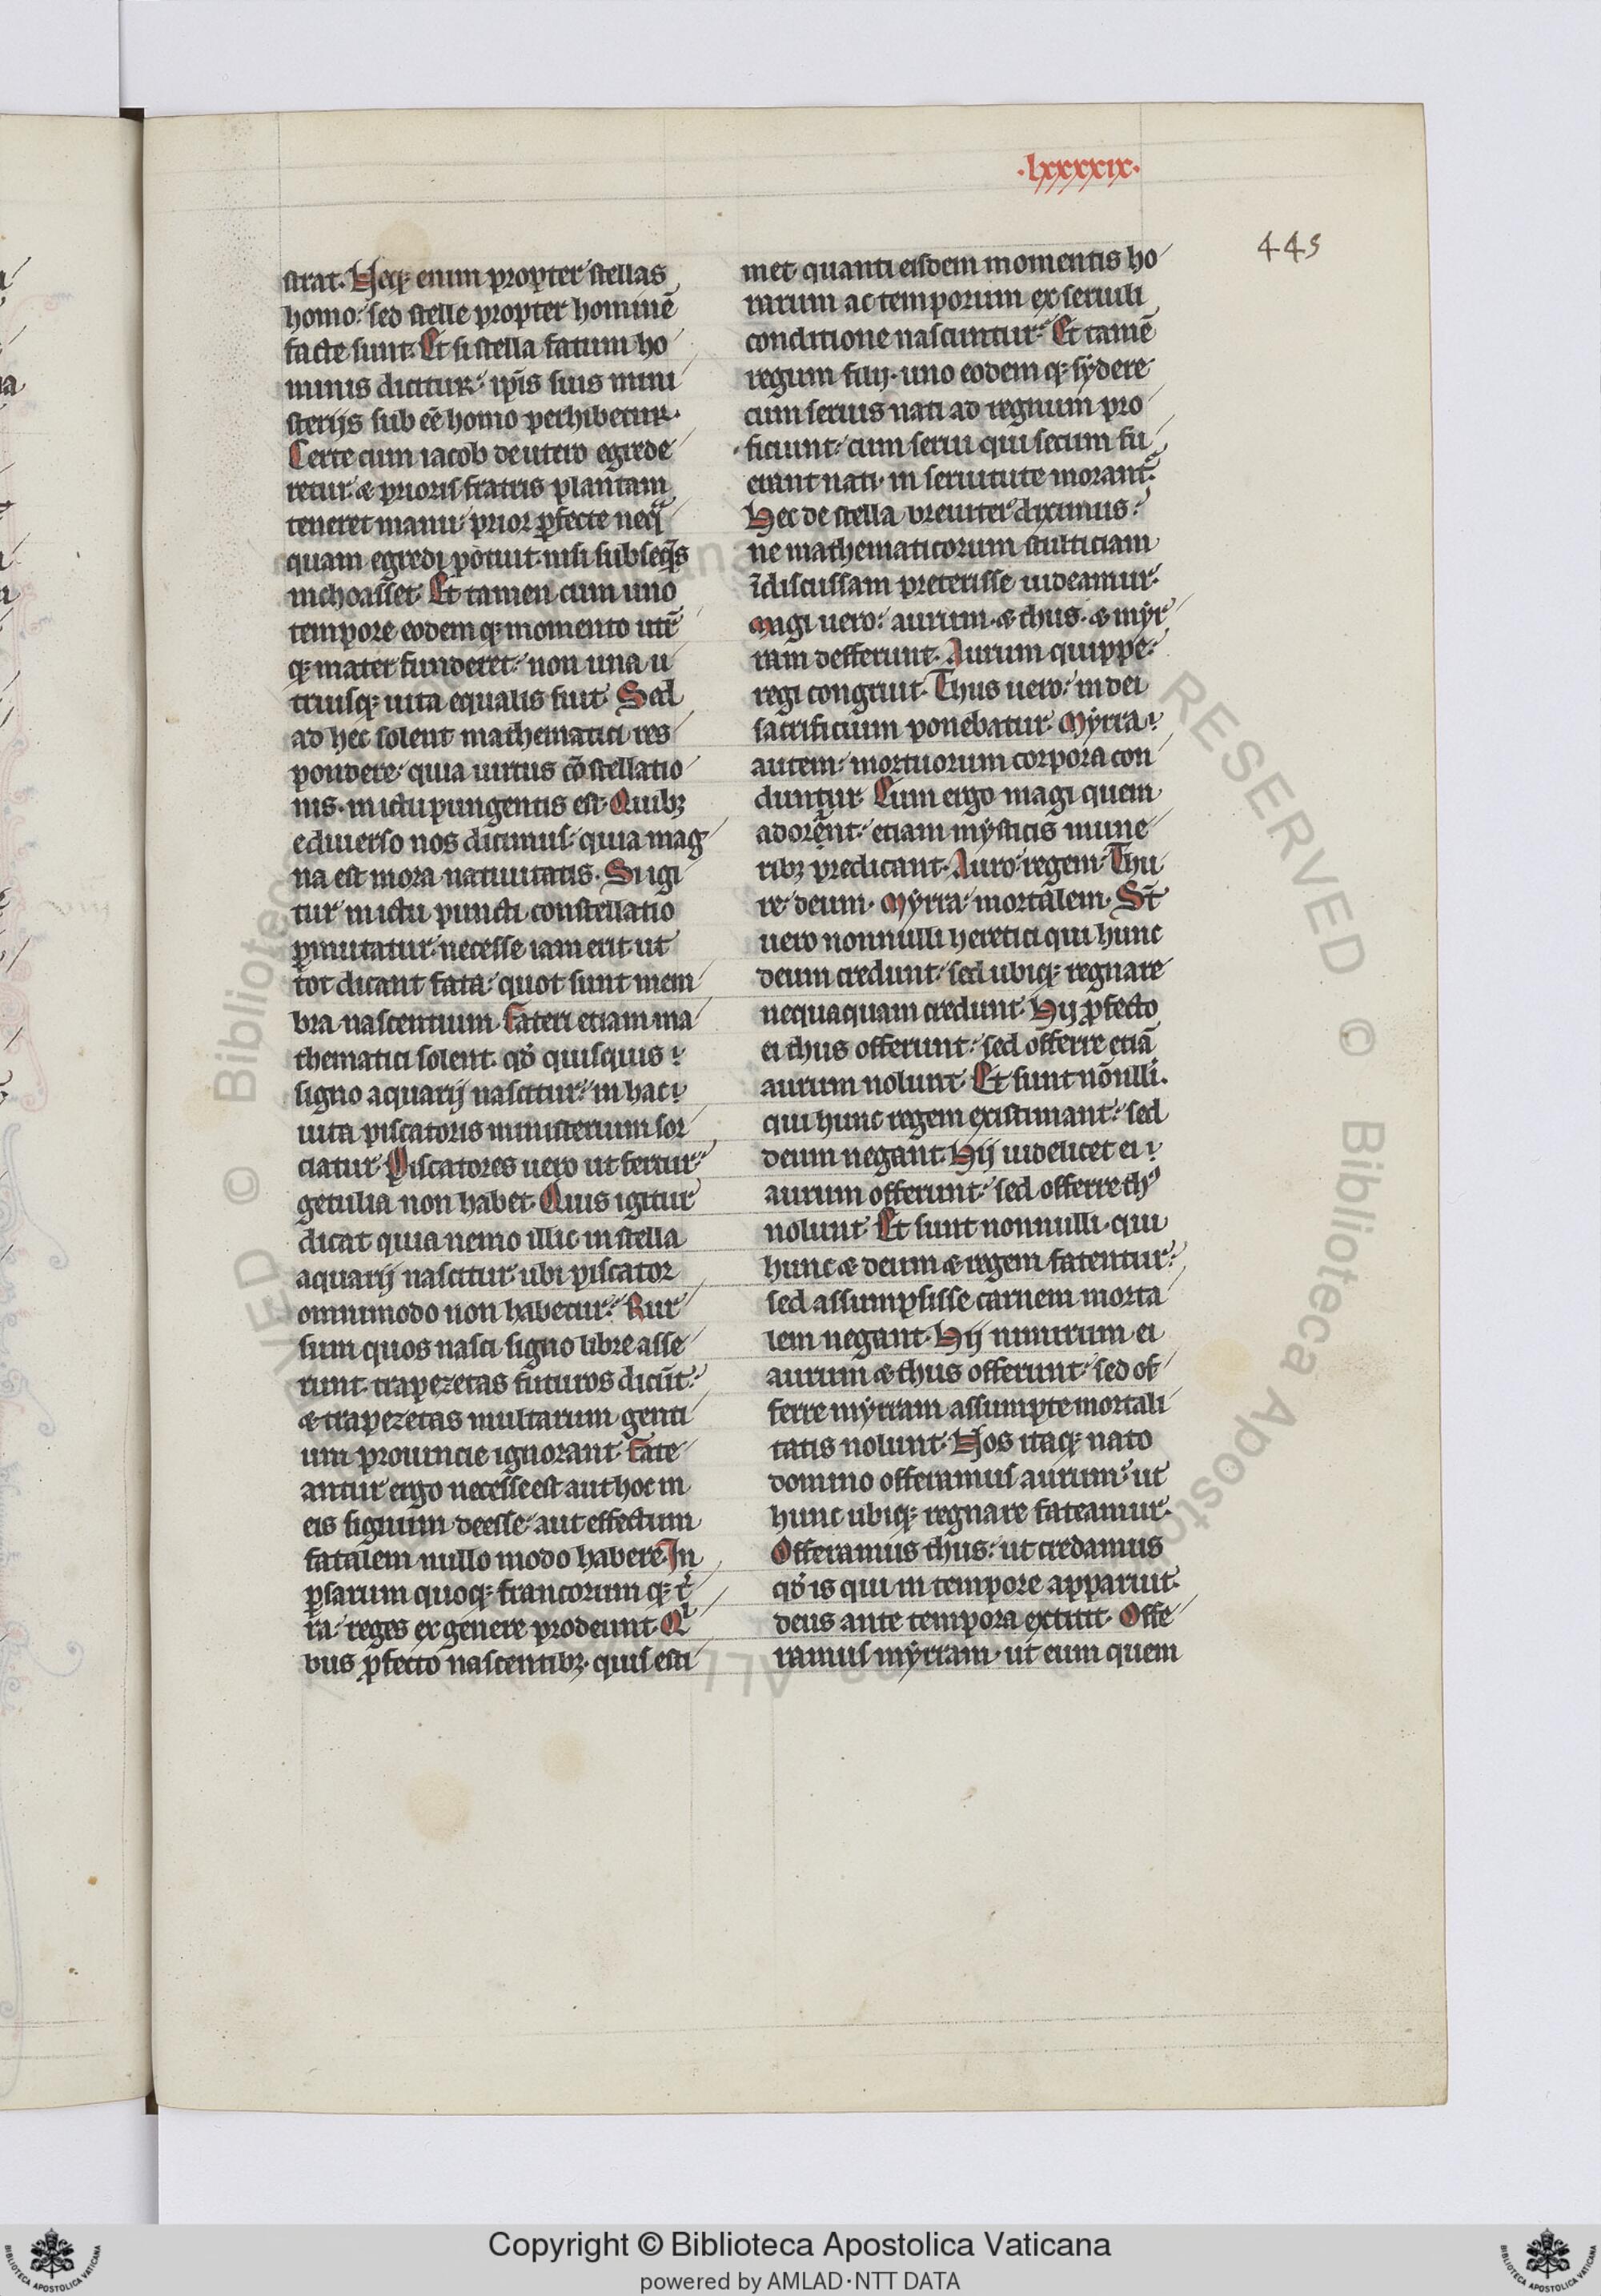 .lxxxxix.
445
strat. Neqꝫ enim propter stellas
homo: sed stelle propter hominē
facte sunt. Et si stella fatum ho
minis dicitur: ip̄is suis mini
sterijs sub eē homo perhibetur.
Certe cum iacob de utero egrede
retur. & prioris fratris plantam
teneret manu: prior ꝑfecte neqͣ
quam egredi potuit. nisi subseq̄s
inchoasset. Et tamen cum uno
tempore eodem qꝫ momento utr̄
qꝫ mater funderet: non una u
triusqꝫ uita equalis fuit. Sed
ad hec solent mathematici res
pondere: quia uirtus cōstellatio
nis. in ictu pungentis est. Quibꝫ
e diuerso nos dicimus: quia mag
na est mora natiuitatis. Si igi
tur in ictu puncti constellatio
ꝑmutatur: necesse iam erit ut
tot dicant fata: quot sunt mem
bra nascentium. Fateri etiam ma
thematici solent. qđ quisquis
signo aquarij nascitur: in hac
uita piscatoris ministerium sor
ciatur. Piscatores uero ut fertur
getulia non habet. Quis igitur
dicat quia nemo illic in stella
aquarij nascitur. ubi piscator
omnimodo non habetur? Rur
sum quos nasci signo libre asse
runt. trapezetas futuros dicūt:
& trapezetas multarum genti
um prouincie ignorant. Fate
antur ergo necesse est aut hoc in
eis signum deesse: aut effectum
fatalem nullo modo habere. In
ꝑsarum quoqꝫ francorum qꝫ t̄
ra: reges ex genere prodeunt. Qⁱ
bus ꝓfecto nascentibꝫ. quis esti
met quanti eisdem momentis ho
rarum ac temporum ex seruili
conditione nascuntur? Et tamē
regum filij. uno eodem qꝫ sydere
cum seruis nati ad regnum pro
ficiunt: cum serui qui secum fu
erant nati. in seruitute morant̄.
Hec de stella breuiter diximus:
ne mathematicorum stulticiam
īdiscussam preterisse uideamur.
Magi uero: aurum. & thus. & myr
ram defferunt. Aurum quippe:
regi congruit. Thus uero: in dei
sacrificium ponebatur. Myrra
autem: mortuorum corpora con
duntur. Cum ergo magi quem
adorēnt: etiam mysticis mune
ribꝫ predicant. Auro: regem. Thu
re: deum. Myrra: mortalem. St̄
uero nonnulli heretici qui hunc
deum credunt: sed ubiqꝫ regnare
nequaquam credunt. Hij ꝓfecto
ei thus offerunt: sed offerre etiā
aurum nolunt. Et sunt nōnlli.
qui hunc regem existimant: sed
deum negant. Hij uidelicet ei
aurum offerunt: sed offerre thꝰ
nolunt. Et sunt nonnulli. qui
hunc & deum & regem fatentur:
sed assumpsisse carnem morta
lem negant. Hij nimirum ei
aurum & thus offerunt: sed of
ferre myrram assumpte mortali
tatis nolunt. Nos itaqꝫ nato
domino offeramus aurum: ut
hunc ubiqꝫ regnare fateamur.
Offeramus thus: ut credamus
qđ is qui in tempore apparuit.
deus ante tempora extitit. Offe
ramus myrram. ut eum quem
Copyright © Biblioteca Apostolica Vaticana
powered by AMLAD·NTT DATA